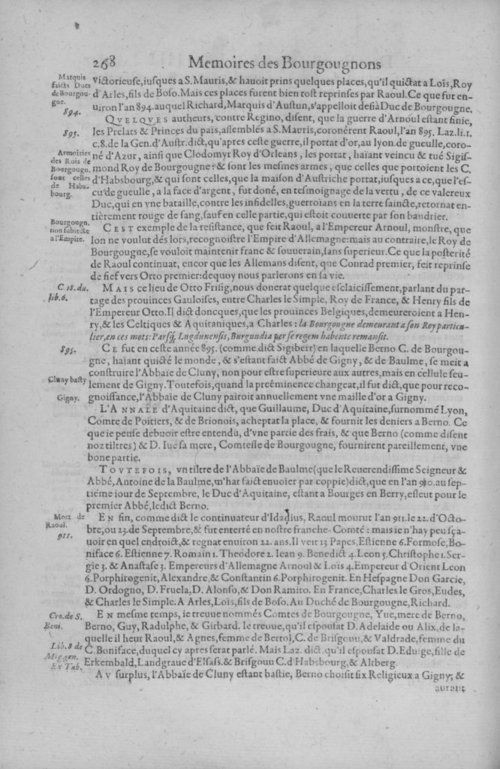 268 Memoires des Bourgougnons
Marquis
faicts Ducs
de Bourgou-
gne.
894.
victorieuse, iusques a S. Mauris, & hauoit prins quelques places, qu'il quictat a Loïs, Roy
d'Arles, fils de Boso. Mais ces places furent bien tost reprinses par Raoul. Ce que fut en-
uiron l'an 894. auquel Richard, Marquis d'Austun, s'appelloit desià Duc de Bourgougne.
895.
QVELQVES autheurs, contre Regino, disent, que la guerre d'Arnoul estant finie,
les Prelats & Princes du païs, assemblés a S. Mauris, coronérent Raoul, l'an 895. Laz. li. 1.
c. 8. de la Gen. d'Austr. dict, qu'apres ceste guerre, il portat d'or, au lyon de gueulle, coro-
Armoiries
des Rois de
Bourgougn.
sont celles
de Habs-
bourg.
né d'Azur, ainsi que Clodomyr Roy d'Orleans, les portat, haïant veincu & tué Sigis-
mond Roy de Bourgougne: & sont les mesmes armes, que celles que portoient les C.
d'Habsbourg, & qui sont celles, que la maison d'Austriche portat, iusques a ce, que l'es-
cu de gueulle, a la face d'argent, fut doné, en tesmoignage de la vertu, de ce valereux
Duc, qui en yne bataille, contre les infidelles, guerroians en la terre saincte, retornat en-
tièrement rouge de sang, sauf en celle partie, qui estoit couuerte par son bandrier.
Bourgougn.
non subiecte
a l'Empire.
C'EST exemple de la resistance, que feit Raoul, a l'Empereur Arnoul, monstre, que
lon ne voulut dés lors, recognoistre l'Empire d'Allemagne: mais au contraire, le Roy de
Bourgougne, se vouloit maintenir franc & souuerain, sans superieur. Ce que la posterité
de Raoul continuat, encor que les Allemans disent, que Conrad premier, feit reprinse
de fief vers Otto premier: dequoy nous parlerons en sa vie.
C. 18. du.
lib. 6.
MAIS ce lieu de Otto Frisig, nous donerat quelque esclaicissement, parlant du par-
tage des prouinces Gauloises, entre Charles le Simple, Roy de France, & Henry fils de
l'Empereur Otto. Il dict doncques, que les prouinces Belgiques, demeureroient a Hen-
ry, & les Celtiques & Aquitaniques, a Charles: la Bourgougne demeurant a son Roy particu-
lier, en ces mots: Parsq̃; Lugdunensis, Burgundia per se regem habente remansit.
895.
CE fut en ceste année 895. (comme dict Sigibert) en laquelle Berno C. de Bourgou-
gne, haïant quicté le monde, & s'estant faict Abbé de Gigny, & de Baulme, se meit a
Cluny basty
construire l'Abbaïe de Cluny, non pour estre superieure aux autres, mais en cellule seu-
lement de Gigny. Toutefois, quand la preéminence changeat, il fut dict, que pour reco-
Gigny.
gnoissance, l'Abbaïe de Cluny paieroit annuellement vne maille d'or a Gigny.
L'ANNALE d'Aquitaine dict, que Guillaume, Duc d'Aquitaine, surnommé Lyon,
Comte de Poitiers, & de Brionois, acheptat la place, & fournit les deniers a Berno. Ce
que ie pense debuoir estre entendu, d'vne partie des frais, & que Berno (comme disent
noz tiltres) & D. Iue sa mere, Comtesse de Bourgougne, fournirent pareillement, vne
bone partie.
TOVTEFOIS, vn tiltre de l'Abbaïe de Baulme (que le Reuerendissime Seigneur &
Abbé, Antoine de la Baulme, m'hat faict enuoïer par coppie) dict, que en l'an 910. au sep-
tiéme iour de Septembre, le Duc d'Aquitaine, estant a Bourges en Berry, esleut pour le
premier Abbé, ledict Berno.
Mort de
Raoul.
911.
EN fin, comme dict le continuateur d'Idatius, Raoul mourut l'an 911. le 22. d'Octo-
bre, ou 23. de Septembre, & fut enterré en nostre franche-Comté: mais ie n'hay peu sça-
uoir en quel endroict, & regnat enuiron 22. ans. Il veit 13 Papes, Estienne 6. Formose, Bo-
niface 6. Estienne 7. Romain 1. Theodore 2. Iean 9. Benedict 4. Leon 5. Christophe 1. Ser-
gie 3. & Anastase 3. Empereurs d'Allemagne Arnoul & Loïs 4. Empereur d'Orient Leon
6. Porphirogenit, Alexandre, & Constantin 6. Porphirogenit. En Hespagne Don Garcie,
D. Ordogno, D. Fruela, D. Alonso, & Don Ramiro. En France, Charles le Gros, Eudes,
& Charles le Simple. A Arles, Loïs, fils de Boso. Au Duché de Bourgougne, Richard.
Cro. de S.
Beni.
EN mesme temps, ie treuue nommés Comtes de Bourgougne, Yue, mere de Berno,
Berno, Guy, Radulphe, & Girbard. Ie treuue, qu'il espousat D. Adelaide ou Alix, de la-
quelle il heut Raoul, & Agnes, femme de Bertol, C. de Brisgouu, & Valdrade, femme du
Lib. 8 de
Mig. gen.
Ex Tab.
C. Boniface, duquel cy apres serat parlé. Mais Laz. dict, qu'il espousat D. Eduige, fille de
Erkembald, Landgraue d'Elsass. & Brisgouu C. d'Habsbourg, & Altberg.
AV surplus, l'Abbaïe de Cluny estant bastie, Berno choisit six Religieux a Gigny; &